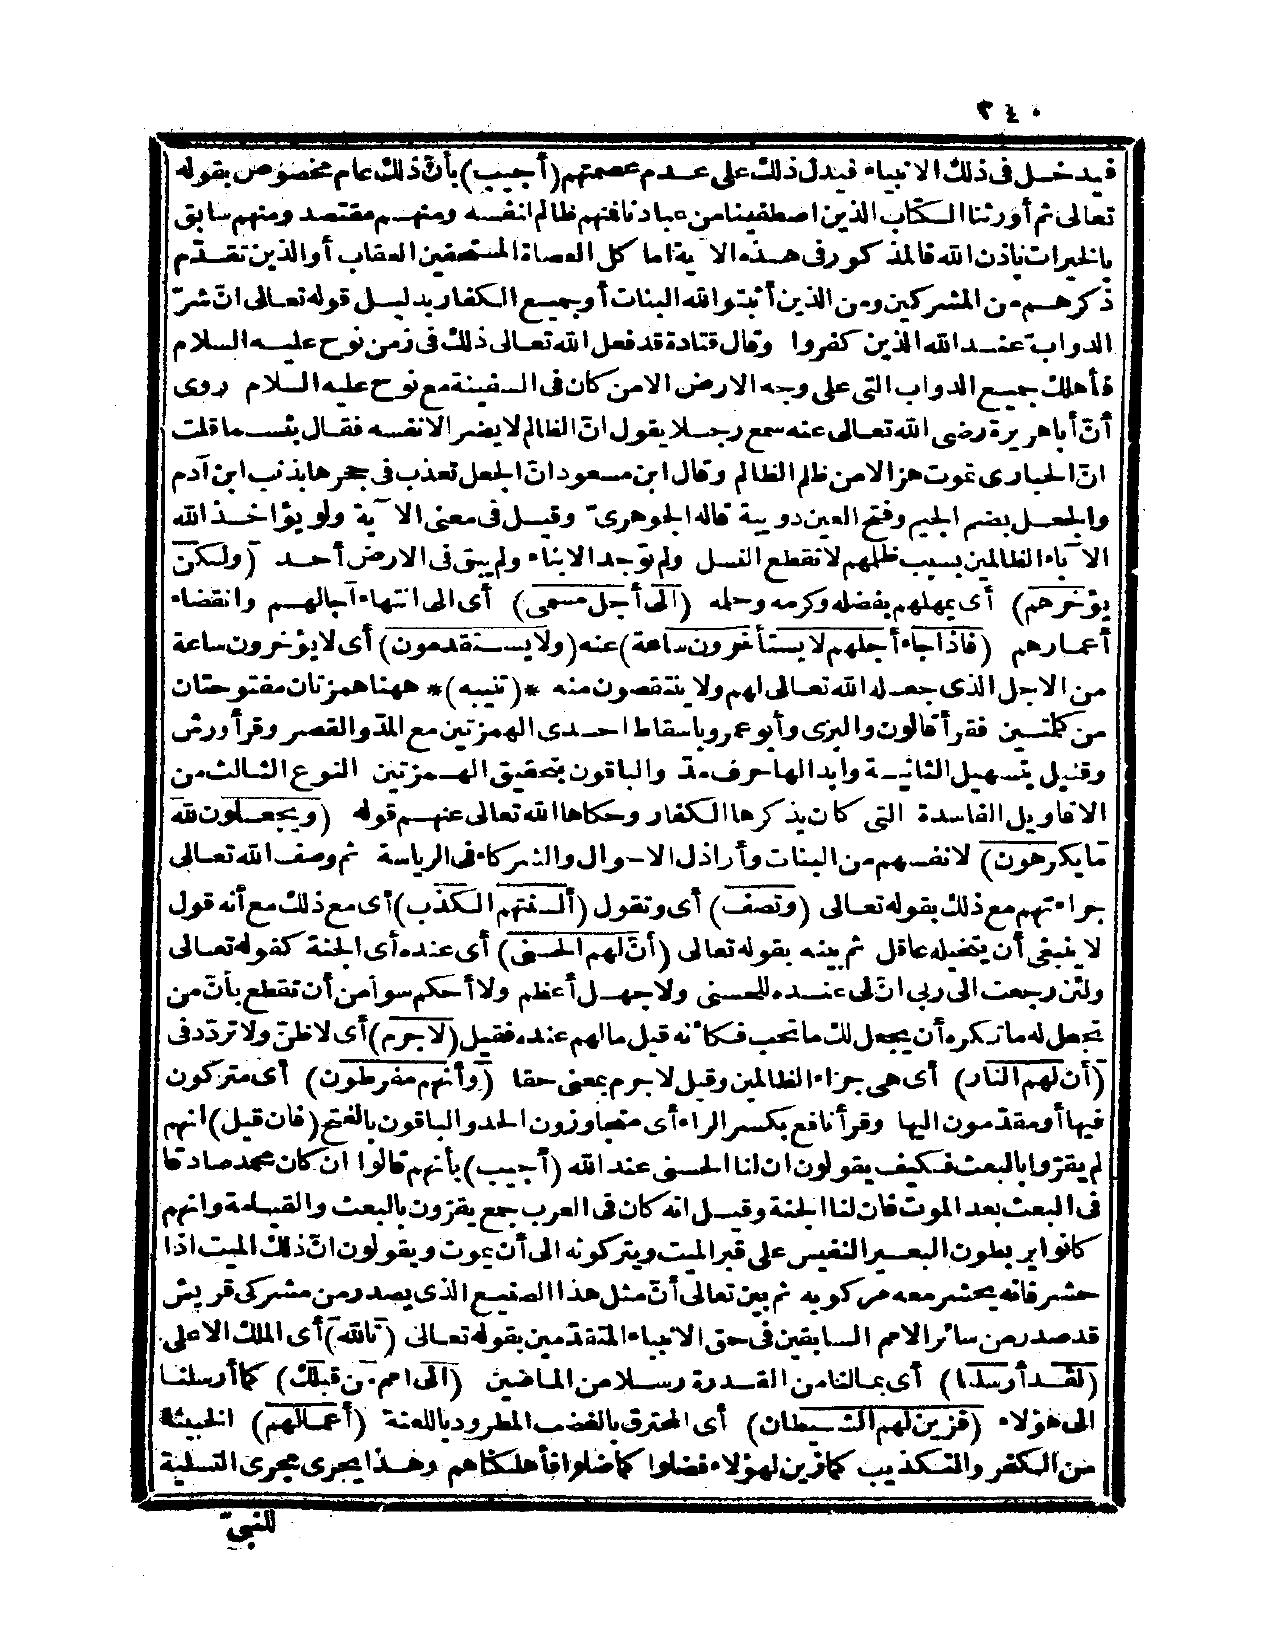 ٢٤٠
فيدخل فى ذلك الانبياء فيدل ذلك على عدم عصمتهم (أجيب) بأنّ ذلك عام مخصوص بقوله
تعالى ثم أورثنا الكتاب الذين اصطفينا من عبادنا فمنهم ظالم لنفسه ومنهم مقتصد ومنهم سابق
بالخيرات باذن الله فالمذكور فى هذه الآية اما كل العصاة المستحقين العقاب أو الذين تقدّم
ذكرهم من المشركين ومن الذين أثبتوا لله البنات أو جميع الكفار بدليل قوله تعالى انّ شرّ
الدوابّ عند الله الذين كفروا وقال قتادة قد فعل الله تعالى ذلك فى زمن نوح عليه السلام
فأهلك جميع الدواب التى على وجه الارض الا من كان فى السفينة مع نوح عليه السلام روى
أنّ أبا هريرة رضى الله تعالى عنه سمع رجلا يقول انّ الظالم لا يضر الا نفسه فقال بئسما قلت
انّ الحبارى تموت هزالا من ظلم الظالم وقال ابن مسعود انّ الجعل تعذب فى جحرها بذنب ابن آدم
والجعل بضم الجيم وفتح العين دويبة قاله الجوهرىّ وقيل فى معنى الآية ولو يؤاخذ الله
الآباء الظالمين بسبب ظلمهم لانقطع النسل ولم توجد الابناء ولم يبق فى الارض أحد (ولكن
يؤخرهم) أى يمهلهم بفضله وكرمه وحلمه (الى أجل مسمى) أى الى انتهاء آجالهم وانقضاء
أعمارهم (فاذا جاء أجلهم لا يستأخرون ساعة) عنه (ولا يستقدمون) أى لا يؤخرون ساعة
من الاجل الذى جعله الله تعالى لهم ولا ينتقصون منه *(تنبيه)* ههنا همزتان مفتوحتان
من كلمتين فقرأ قالون والبزى وأبو عمرو باسقاط احدى الهمزتين مع المدّ والقصر وقرأ ورش
وقنبل بتسهيل الثانية وابدالها حرف مدّ والباقون بتحقيق الهمزتين النوع الثالث من
الاقاويل الفاسدة التى كان يذكرها الكفار وحكاها الله تعالى عنهم قوله (ويجعلون لله
ما يكرهون) لانفسهم من البنات وأراذل الاموال والشركاء فى الرياسة ثم وصف الله تعالى
جراءتهم مع ذلك بقوله تعالى (وتصف) أى وتقول (ألسنتهم الكذب) أى مع ذلك مع أنه قول
لا ينبغى أن يتخيله عاقل ثم بينه بقوله تعالى (أنّ لهم الحسنى) أى عنده أى الجنة كقوله تعالى
ولئن رجعت الى ربى انّ لى عنده للحسنى ولا جهل أعظم ولا أحكم سوأ من أن تقطع بأنّ من
تجعل له ما تكره أن يجعل لك ما تحب فكأنه قيل ما لهم عنده فقيل (لا جرم) أى لا ظنّ ولا تردّد فى
(أن لهم النار) أى هى جزاء الظالمين وقيل لا جرم بمعنى حقا (وأنهم مفرطون) أى متركون
فيها أو مقدّمون اليها وقرأ نافع بكسر الراء أى متجاوزون الحد والباقون بالفتح (فان قيل) انهم
لم يقرّوا بالبعث فكيف يقولون ان لنا الحسنى عند الله (أجيب) بأنهم قالوا ان كان محمد صادقا
فى البعث بعد الموت فان لنا الجنة وقيل انه كان فى العرب جمع يقرّون بالبعث والقيامة وانهم
كانوا يربطون البعير النفيس على قبر الميت ويتركونه الى أن يموت ويقولون انّ ذلك الميت اذا
حشر فانه يحشر معه مركوبه ثم بين تعالى أنّ مثل هذا الصنيع الذى يصدر من مشركى قريش
قد صدر من سائر الامم السابقين فى حق الانبياء المتقدّمين بقوله تعالى (تالله) أى الملك الاعلى
(لقد أرسلنا) أى بمالنا من القدرة رسلا من الماضين (الى امم من قبلك) كما أرسلنا
الى هؤلاء (فزين لهم الشيطان) أى المحترق بالغضب المطرود باللعنة (أعمالهم) الخبيثة
من الكفر والتكذيب كما زين لهؤلاء فضلوا كما ضلوا فأهلكناهم وهذا يجرى مجرى التسلية
للنبىّ